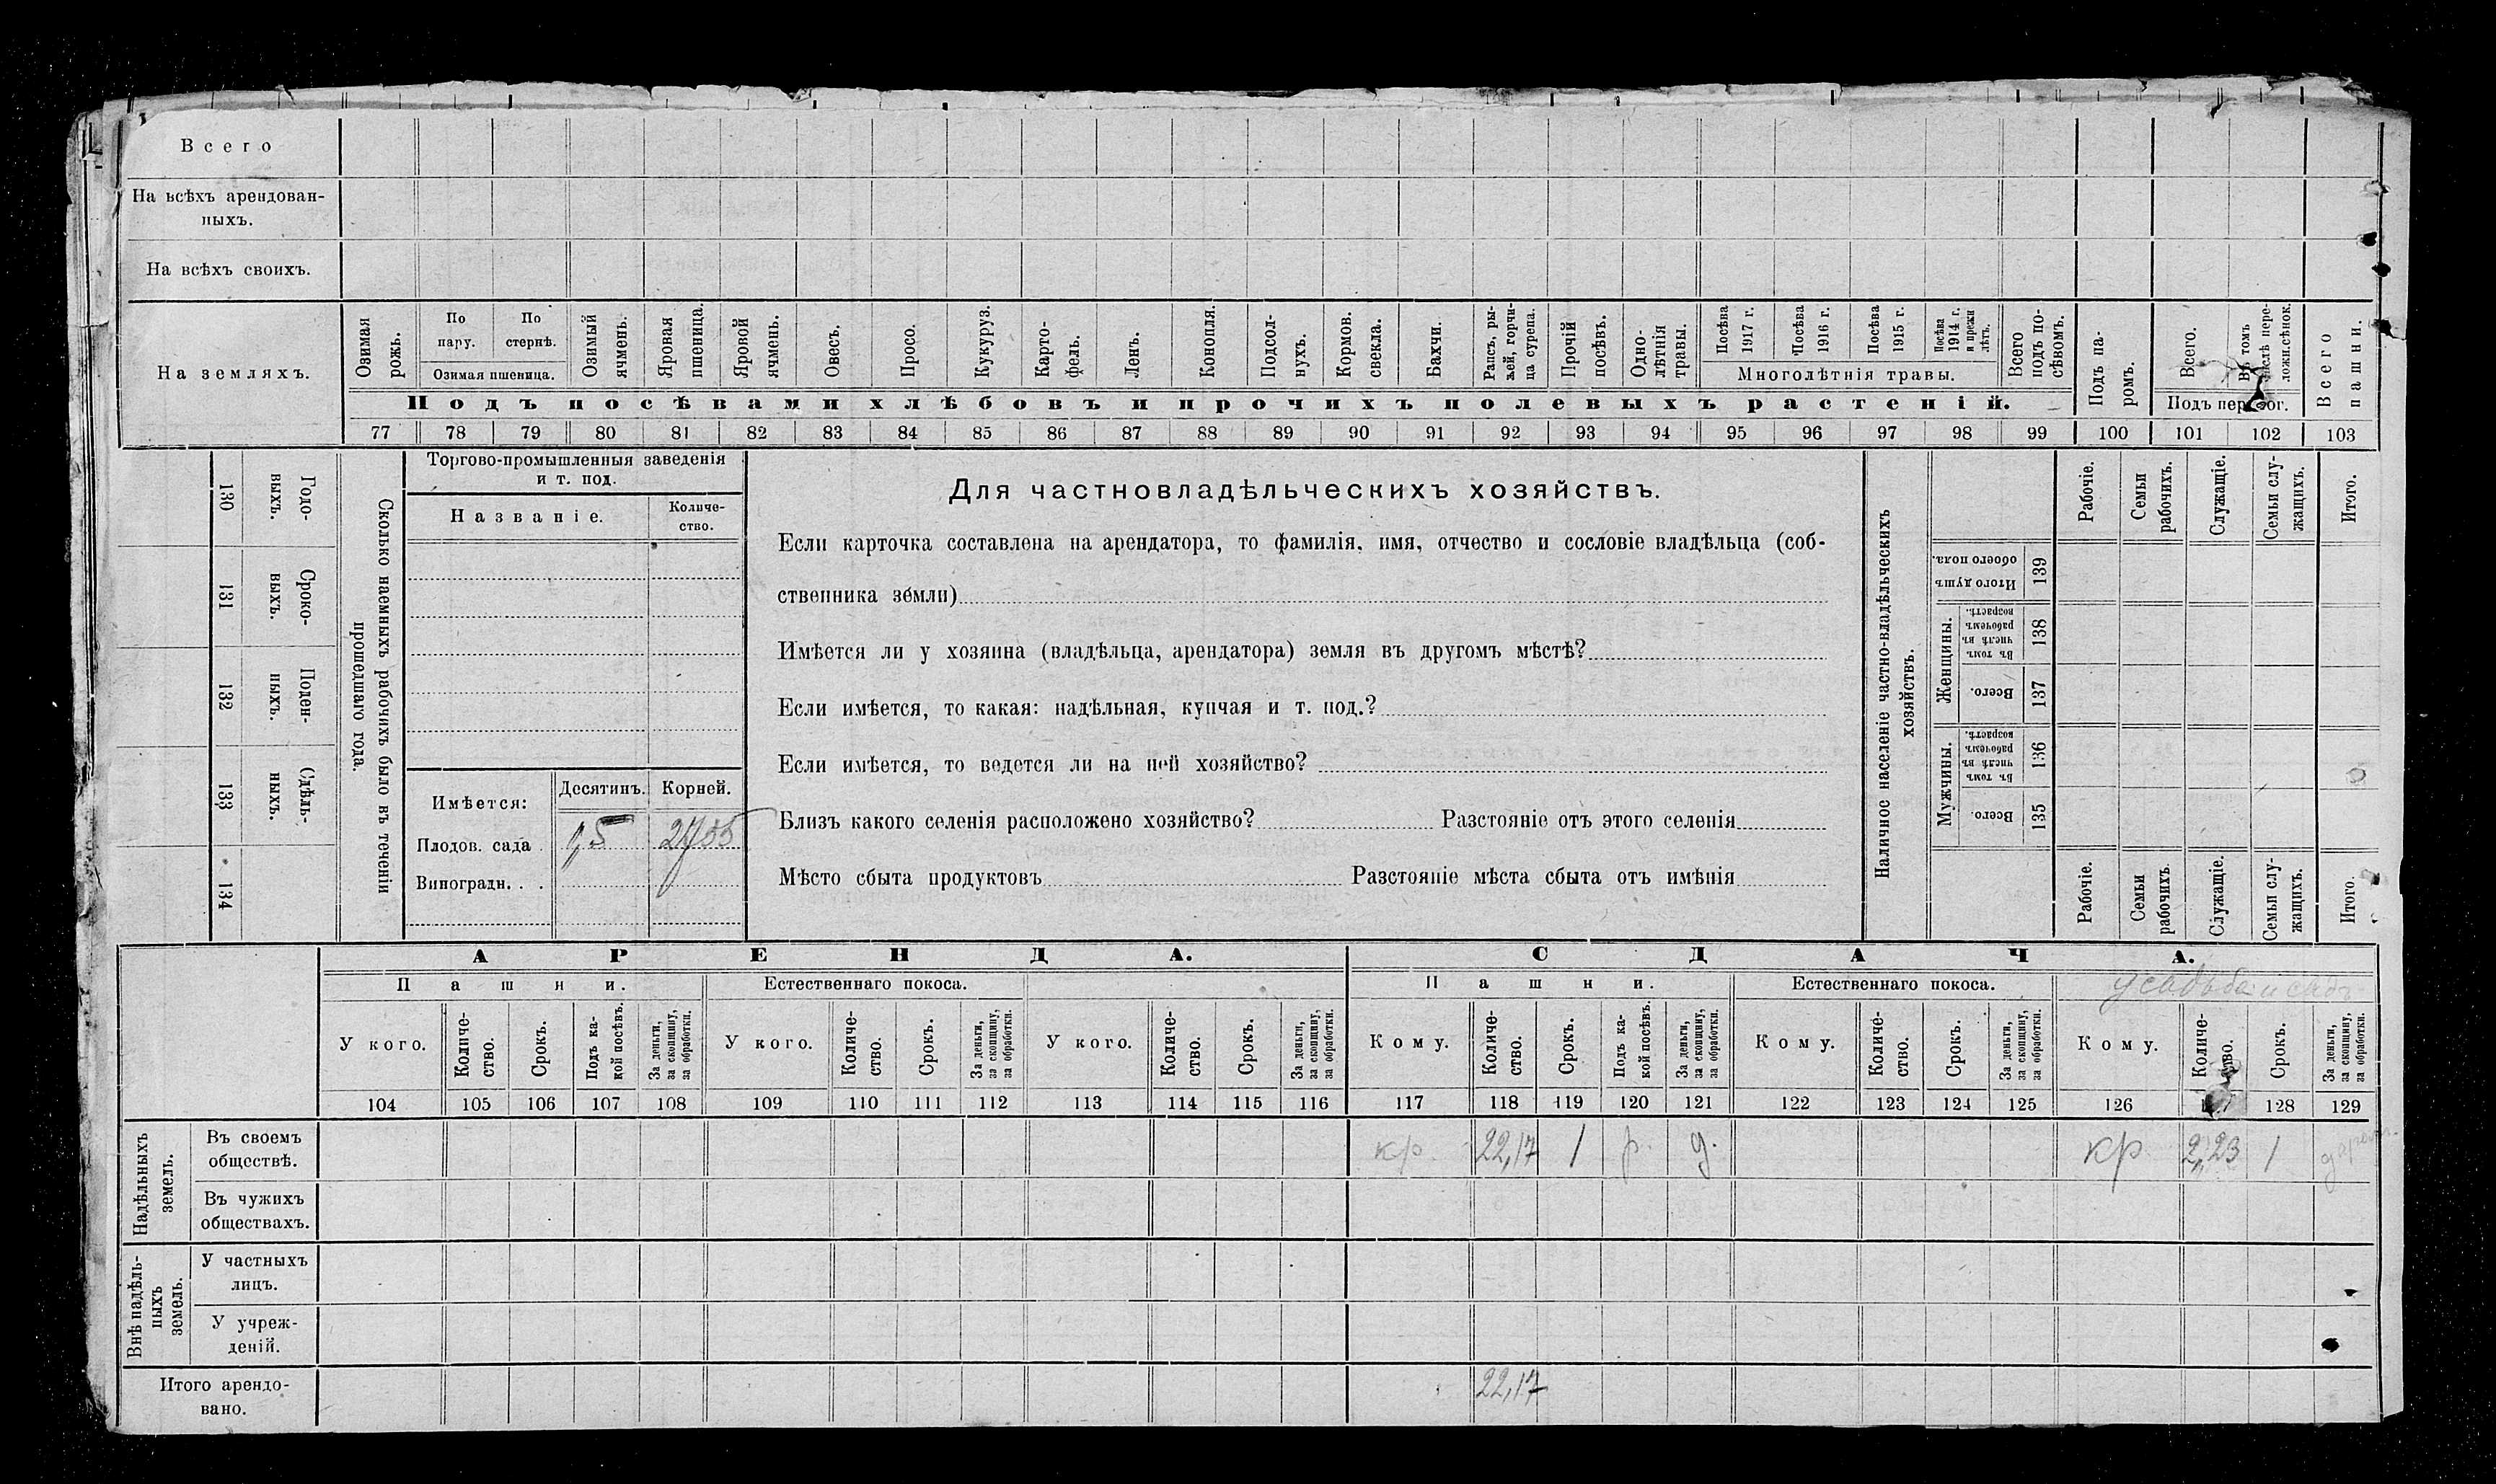 Всего
На всѣхъ арендован-
ныхъ.
На всѣхъ своихъ.
На земляхъ.
Озимая рожь.
По пару.
По стернѣ.
Озимая пшеница.
Озимый ячмень.
Яровая пшеница.
Яровой ячмень.
Овесъ.
Просо.
Кукуруз.
Карто-
фель.
Ленъ.
Конопля.
Подсол-
нухъ.
Кормов. свекла.
Бахчи.
Рапсъ, ры-
жей, горчи-
ца сурепа.
Прочій посѣвъ.
Одно-
лѣтнія
травы.
Посѣва 1917 г.
Посѣва 1916 г.
Посѣва 1915 г.
Посѣва 1914 г. и прежн лѣтъ.
Многолѣтнія травы.
Всего подъ по-
сѣвомъ.
Подъ па-
ромъ.
Всего.
Въ томъ
Всего пашни.
Подъ посѣвами хлѣбовъ и прочихъ полевыхъ растеній.
77 78 79 80 81 82 83 84 85 86 87 88 89 90 91 92 93 94 95 96 97 98 99 100 101 102 103
130
Годо-
выхъ.
131
Сроко-
выхъ.
132
Поден-
ныхъ.
133
Сдѣль-
ныхъ.
134
Сколько наемныхъ рабочихъ было въ теченіи
прошедшаго года.
Торгово-промышленныя заведенія
и т. под.
Названіе.
Количе-
ство.
Имѣется:
Десятинъ.
Корней.
Плодов. сада
Виноградн. . .
Для частновладѣльческихъ хозяйствъ.
Если карточка составлена на арендатора, то фамилія, имя, отчество и сословіе владѣльца (соб-
ственника земли)
Имѣется ли у хозяина (владѣльца, арендатора) земля въ другомъ мѣстѣ?
Если имѣется, то какая: надѣльная, купчая и т. под.?
Если имѣется, то ведется ли на ней хозяйство?
Близъ какого селенія расположено хозяйство? Разстояніе отъ этого селенія
Мѣсто сбыта продуктовъ Разстояніе мѣста сбыта отъ имѣнія
Наличное населеніе частно-владѣльческихъ
хозяйствъ.
Рабочіе.
Семьи рабочихъ.
Служащіе.
Семьи слу-
жащихъ.
Итого.
Итого душъ обоего пола.
139
Женщины.
Въ томъ числѣ въ рабочемъ возрастѣ.
138
Всего.
137
Мужчины.
Въ томъ числѣ въ рабочемъ возрастѣ.
136
Всего.
135
Рабочіе.
Семьи рабочихъ.
Служащіе.
Семьи слу-
жащихъ.
Итого.
АРЕНДА.
СДАЧА.
Пашни.
Естественнаго покоса.
Пашни.
Естественнаго покоса.
усадьба и садъ
У кого.
Количе-
ство.
Срокъ.
Подъ ка-
кой посѣвъ.
За деньги,
за скопщину,
за обработки.
У кого.
Количе-
ство.
Срокъ.
За деньги,
за скопщину,
за обработки.
У кого.
Количе-
ство.
Срокъ.
За деньги,
за скопщину,
за обработки.
Кому.
Количе-
ство.
Срокъ.
Подъ ка-
кой посѣвъ.
За деньги,
за скопщину,
за обработки.
Кому.
Количе-
ство.
Срокъ.
За деньги,
за скопщину,
за обработки.
Кому.
Количе-
Срокъ.
За деньги,
за скопщину,
за обработки.
104 105 106 107 108 109 110 111 112 113 114 115 116 117 118 119 120 121 122 123 124 125 126 128 129
Надѣльныхъ земель.
Въ своемъ
обществѣ.
кр. 22,17 1 р. д. кр 2,23 1
Въ чужихъ
обществахъ.
Внѣ надѣль-
ныхъ
земель.
У частныхъ
лицъ.
У учреж-
деній.
Итого арендо-
вано.
22,17